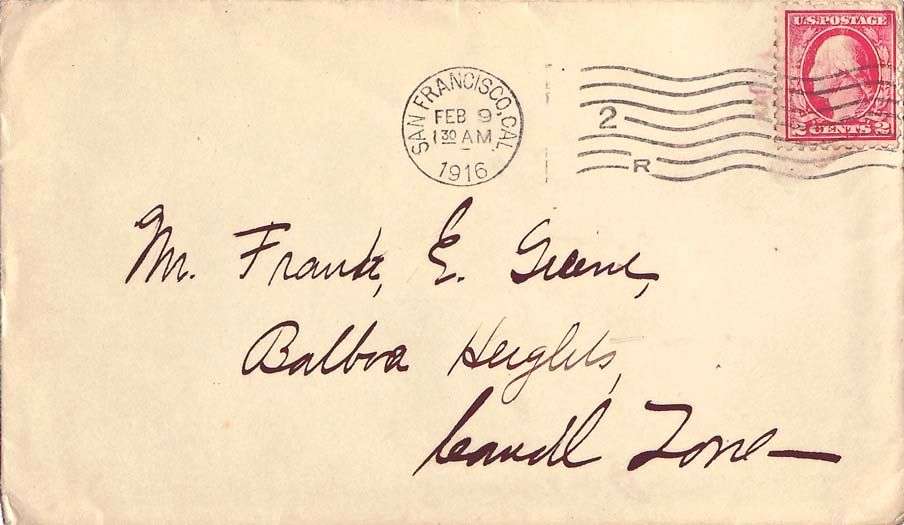 U.S. POSTAGE
2 CENTS 2
SAN FRANCISCO, CAL.
FEB 9
1 30 AM
1916
2
R
Mr. Frank, E. Greene,
Balboa Heights,
Canal Zone—